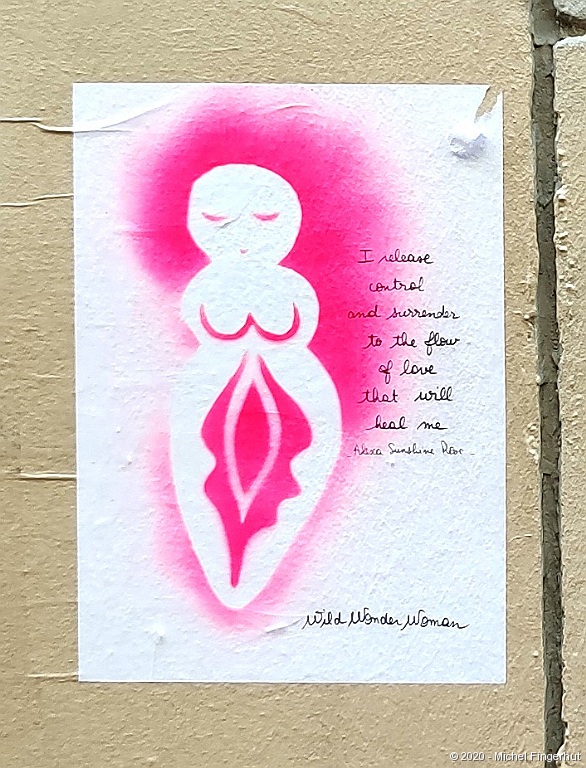 I release
control
and surrender
to the flow
of love
that will
heal me
- Alexa Sunshine Rose -
Wild Wonder Woman
© 2020 - Michel Fingerhut